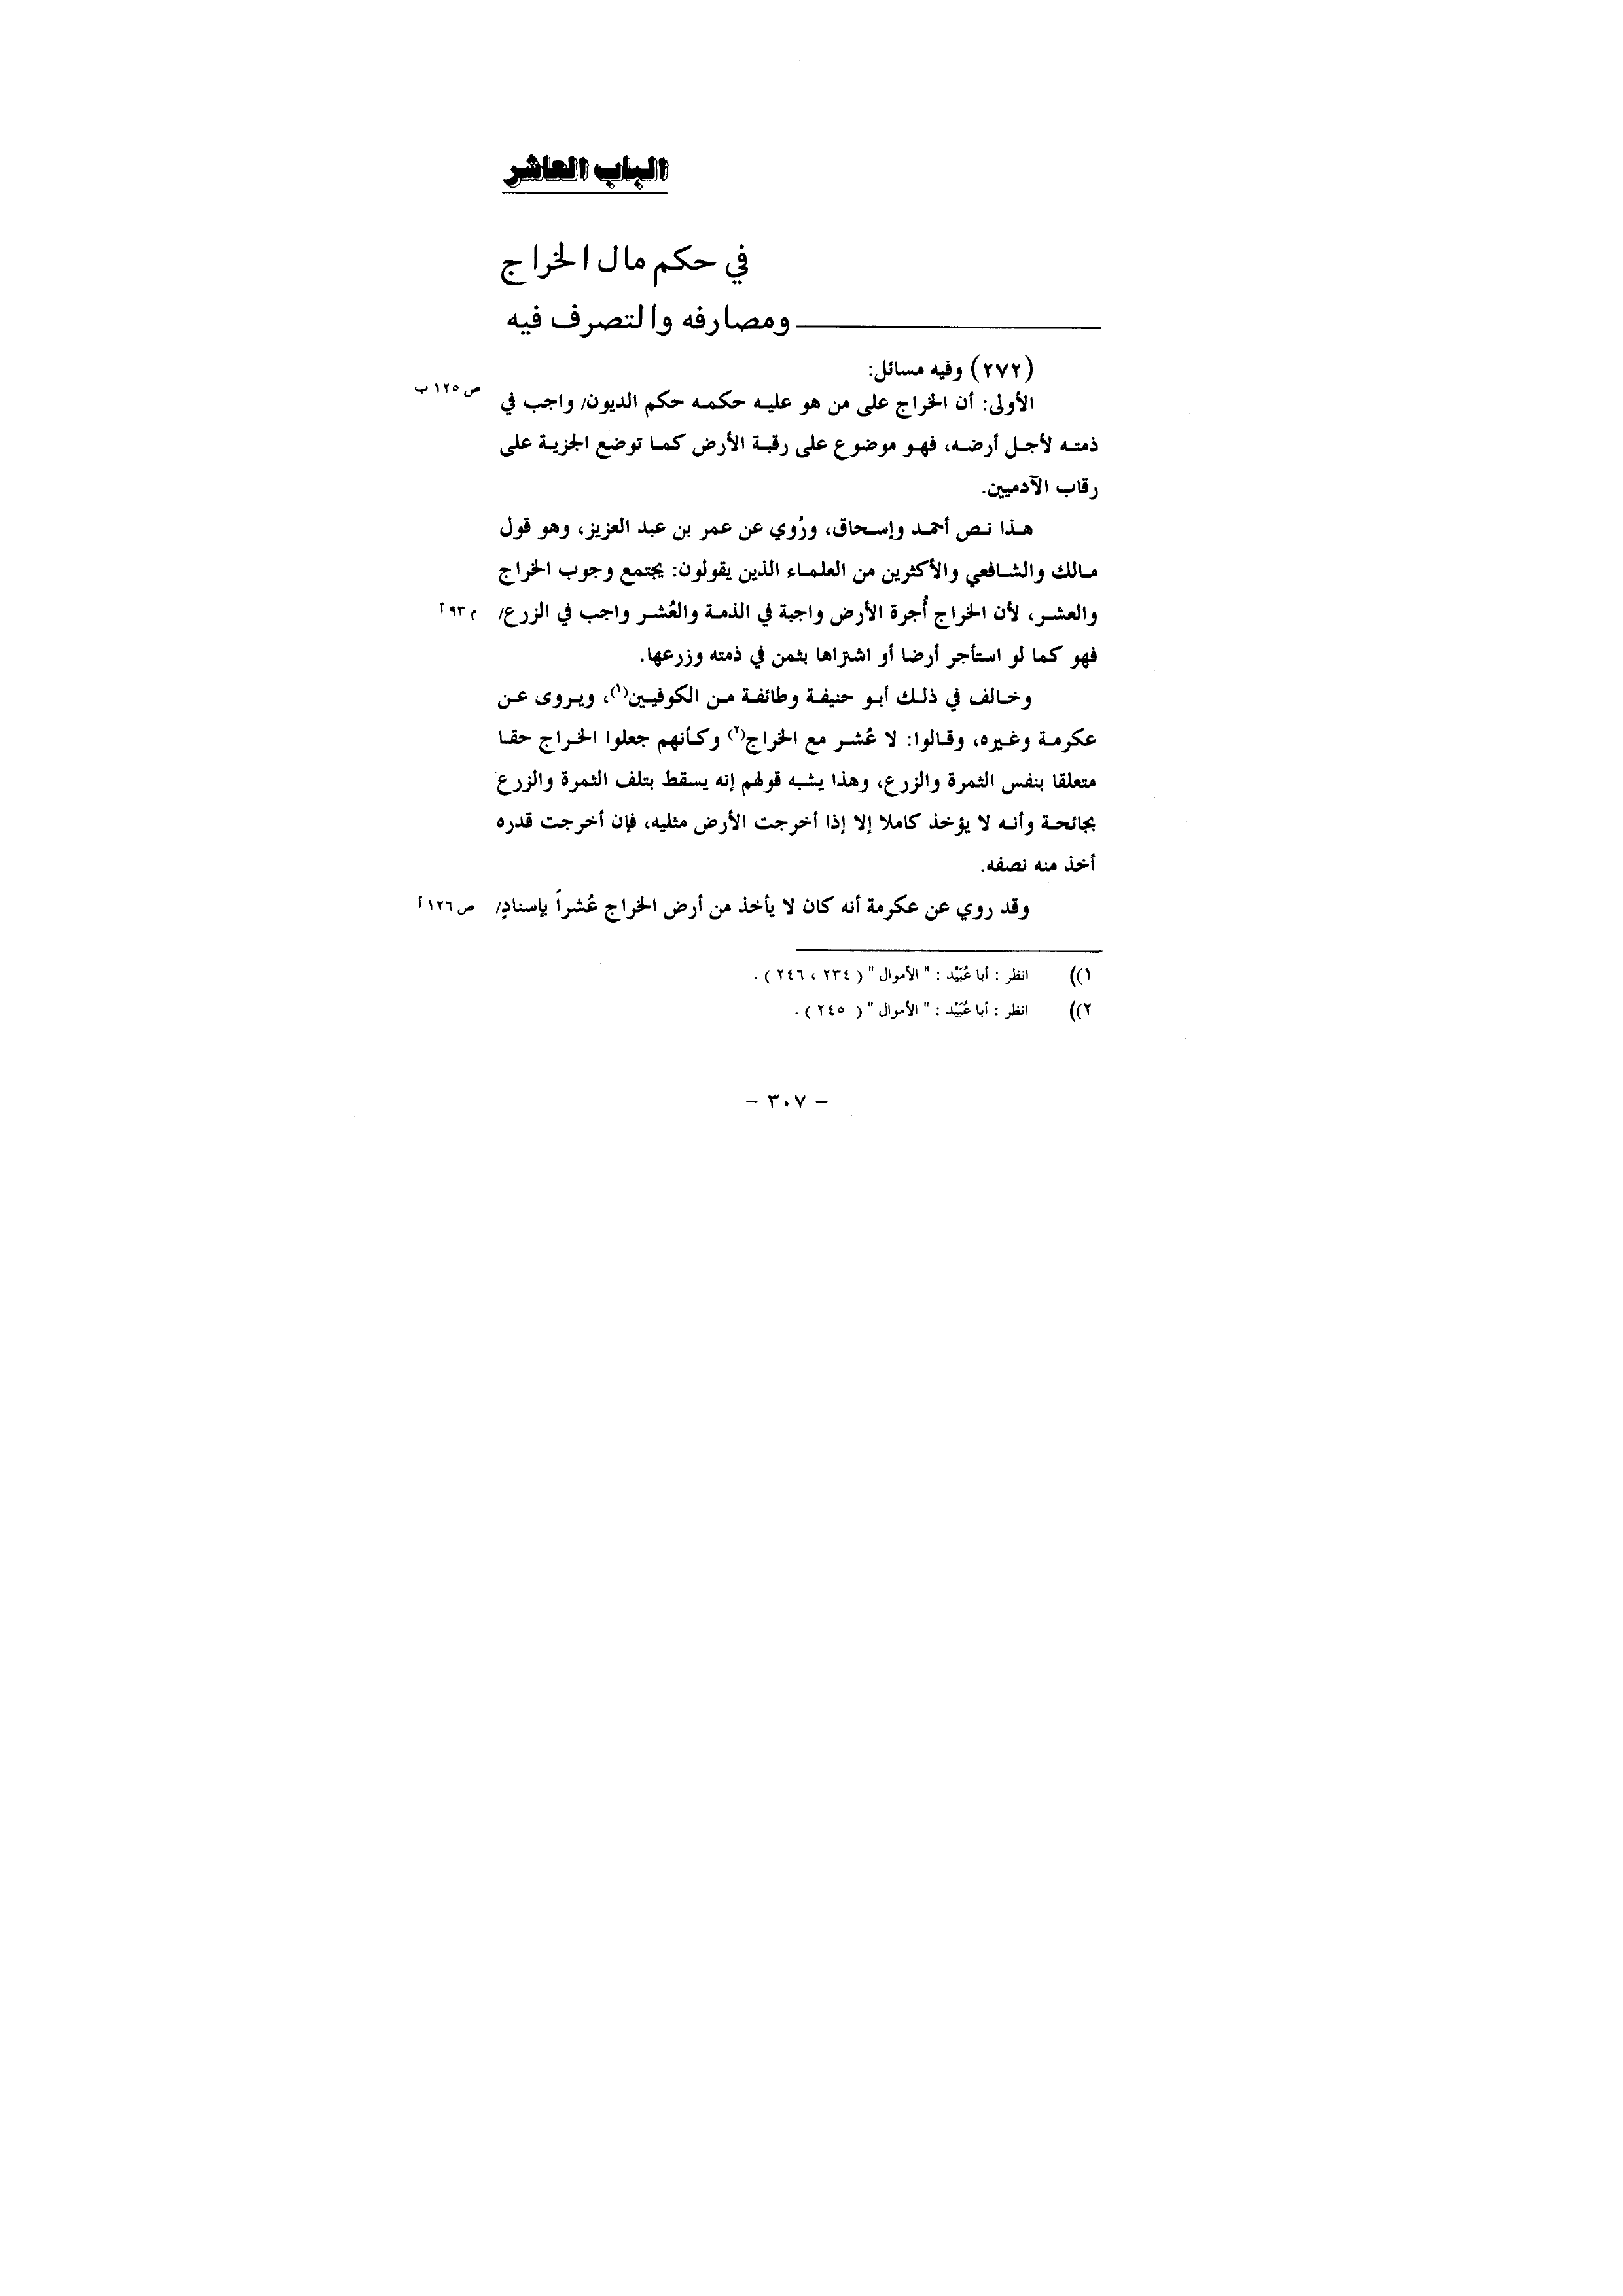 الباب العاشر
في حكم مال الخراج
ومصارفه والتصرف فيه
(٢٧٢) وفيه مسائل:
ص ١٢٥ ب
الأولى: أن الخراج على من هو عليه حكمه حكم الديون/ واجب في
ذمته لأجل أرضه، فهو موضوع على رقبة الأرض كما توضع الجزية على
رقاب الآدميين.
هذا نص أحمد وإسحاق، ورُوي عن عمر بن عبد العزيز، وهو قول
مالك والشافعي والأكثرين من العلماء الذين يقولون: يجتمع وجوب الخراج
والعشر، لأن الخراج أُجرة الأرض واجبة في الذمة والعُشر واجب في الزرع/ م ٩٣ أ
فهو كما لو استأجر أرضا أو اشتراها بثمن في ذمته وزرعها.
وخالف في ذلك أبو حنيفة وطائفة من الكوفيين(١)، ويروى عن
عكرمة وغيره، وقالوا: لا عُشر مع الخراج(٢) وكأنهم جعلوا الخراج حقا
متعلقا بنفس الثمرة والزرع، وهذا يشبه قولهم إنه يسقط بتلف الثمرة والزرع
بجائحة وأنه لا يؤخذ كاملا إلا إذا أخرجت الأرض مثليه، فإن أخرجت قدره
أخذ منه نصفه.
وقد روي عن عكرمة أنه كان لا يأخذ من أرض الخراج عُشراً بإسنادٍ/ ص ١٢٦ أ
١)) انظر : أبا عُبَيْد : " الأموال " ( ٢٣٤ ، ٢٤٦ ) .
٢)) انظر : أبا عُبَيْد : " الأموال " ( ٢٤٥ ) .
– ٣٠٧ –